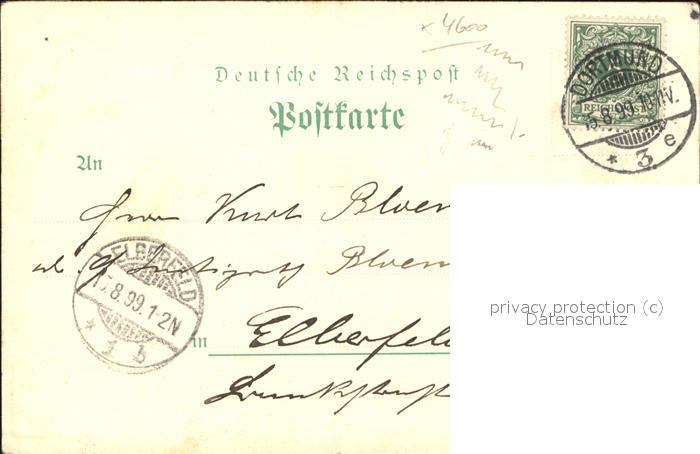 × 4600
Deutsche Reichspost
Postkarte
REICHSPOST
DORTMUND
15.8.99.10-11V.
* 3 e
An
Herrn Kurt Bloem
Justizrath Bloem
ELBERFELD
15.8.99.1-2N
* 3 b
in Elberfeld
privacy protection (c)
Datenschutz